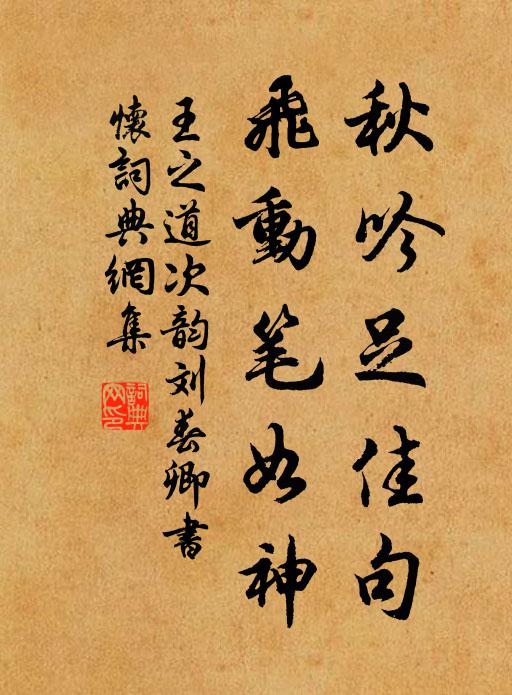 秋吟足佳句
飛動笔如神
王之道次韵刘春卿書
懷詞典網集
詞典网印